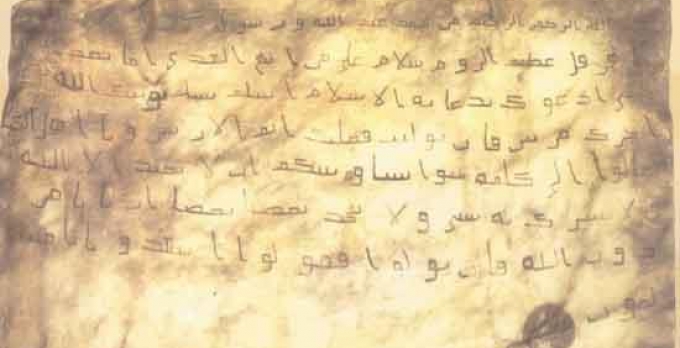 الله الرحمن الرحيم من محمد عبد الله ورسول
هرقل عظيم الروم سلام على من اتبع الهدى اما بعد
ادعوك بدعاية الاسلام اسلم تسلم يوتك الله
اجرك مرتين فان توليت فعليك اثم الاريسين ويا اهل
تعالوا الى كلمة سوا بيننا وبينكم ان لا نعبد الا الله
ولا نشرك به شي ولا يتخذ بعضنا بعضا اربابا من
دون الله فان تولوا فقولوا اشهدوا بانا مس
لمون